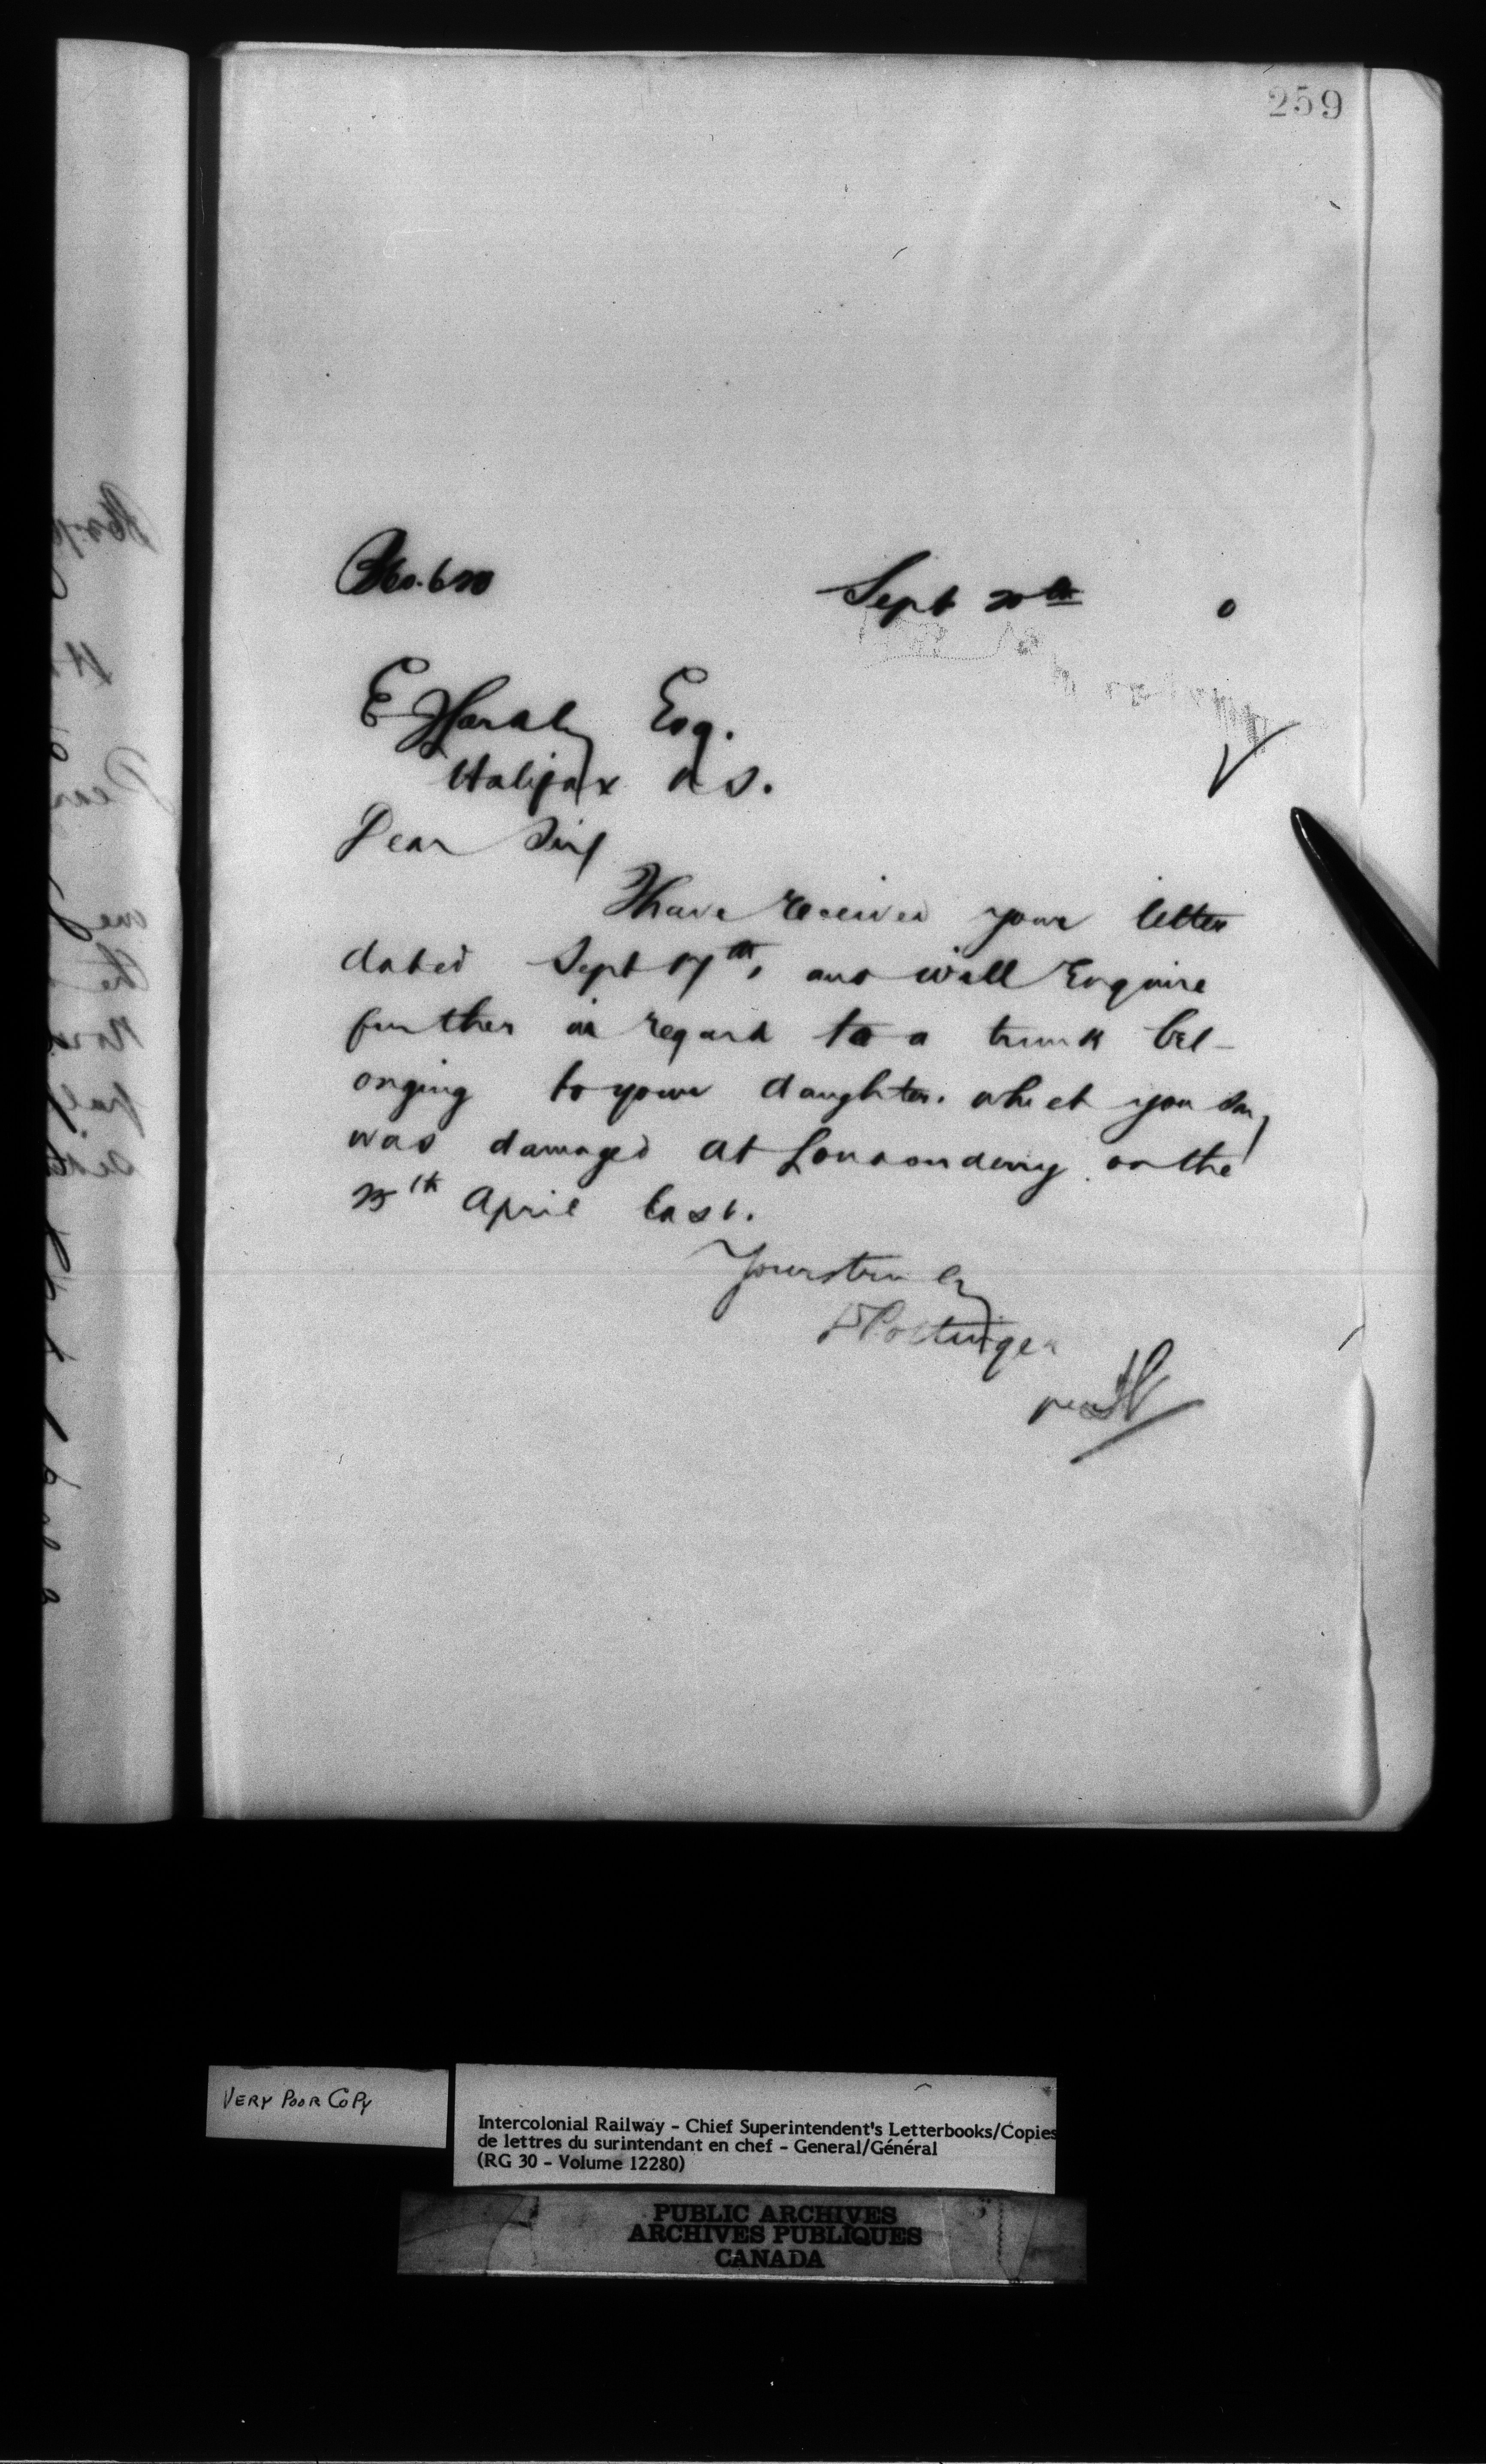 259
Sept 20th 0
E Esq.
Halifax N S.
Dear Sir
I have received your letter
dated Sept 17th, and will Enquire
further in regard to a trunk bel-
onging to your daughter. which you say
was damaged at Londonderry on the
25th April last.
Yours truly
D Pottinger
per
VERY POOR COPY
Intercolonial Railway - Chief Superintendent's Letterbooks/Copies
de lettres du surintendant en chef - General/Général
(RG 30 - Volume 12280)
PUBLIC ARCHIVES
ARCHIVES PUBLIQUES
CANADA